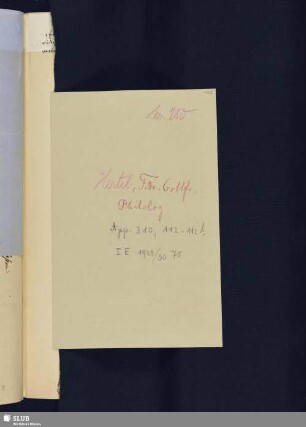 Nr. 200
Hertel, Fdr. Gottfr.
Philolog
App. 310, 112-112b
I E 1929/30 75
SLUB
Wir führen Wissen.